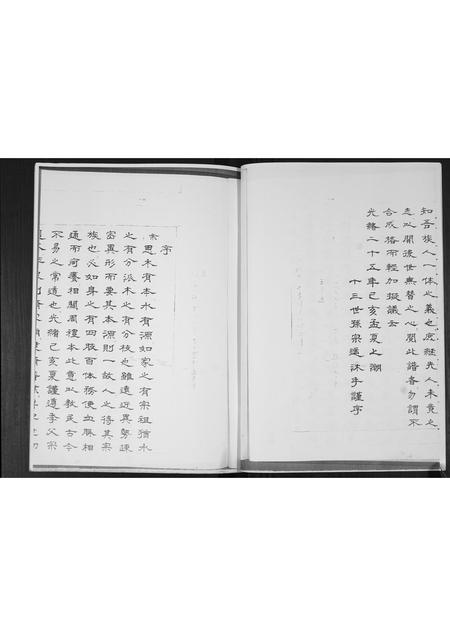 知吾族人一体之義也庶經先人未竟之
志以開後世無替之心閱此譜者勿謂不
合成格而輕加擬議云
光緒二十五年己亥孟夏上澣
十三世孫宗道沐手謹序
序
余思木有本水有源如家之有宗祖猶水
之有分派木之有分枝也雖遠近異勢疎
密異形而要其本源則一故人之待其宗
族也必如身之有四肢百体務使血脈相
通而疴癢相關周禮本此意以教民古今
不易之常道也光緒己亥夏謹遵孝父宗